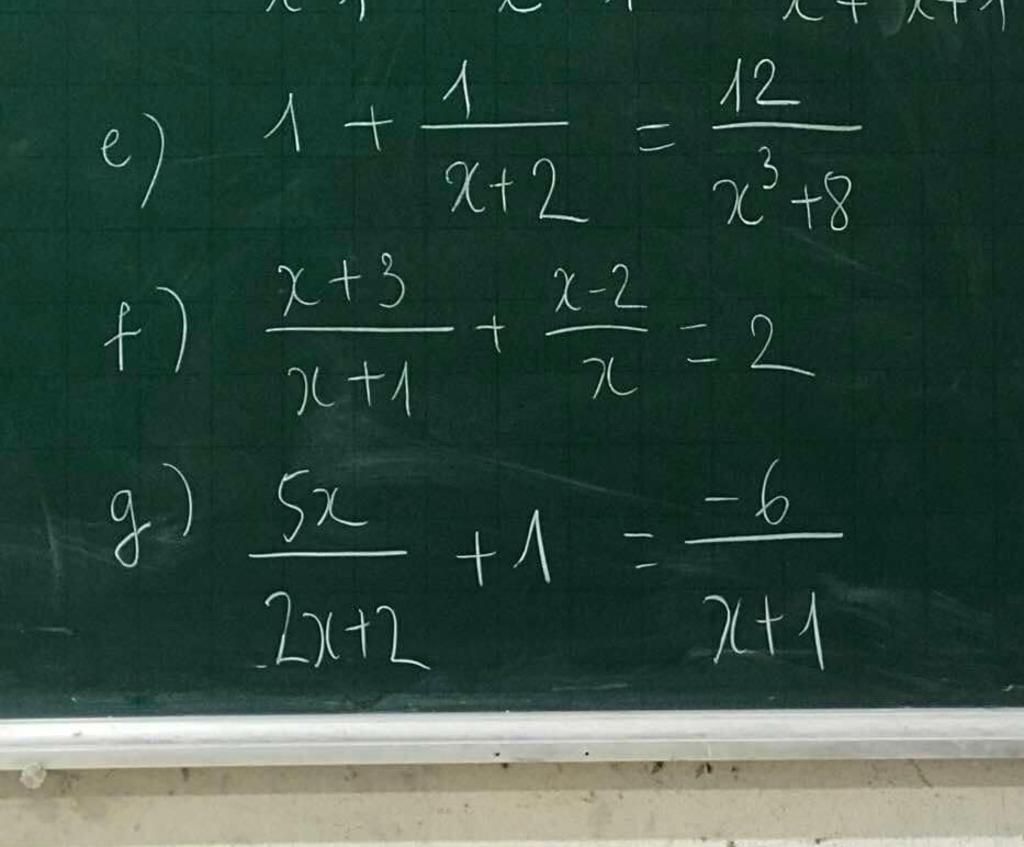 e) 1 + \frac{1}{x+2} = \frac{12}{x^3+8}
f) \frac{x+3}{x+1} + \frac{x-2}{x} = 2
g) \frac{5x}{2x+2} + 1 = \frac{-6}{x+1}